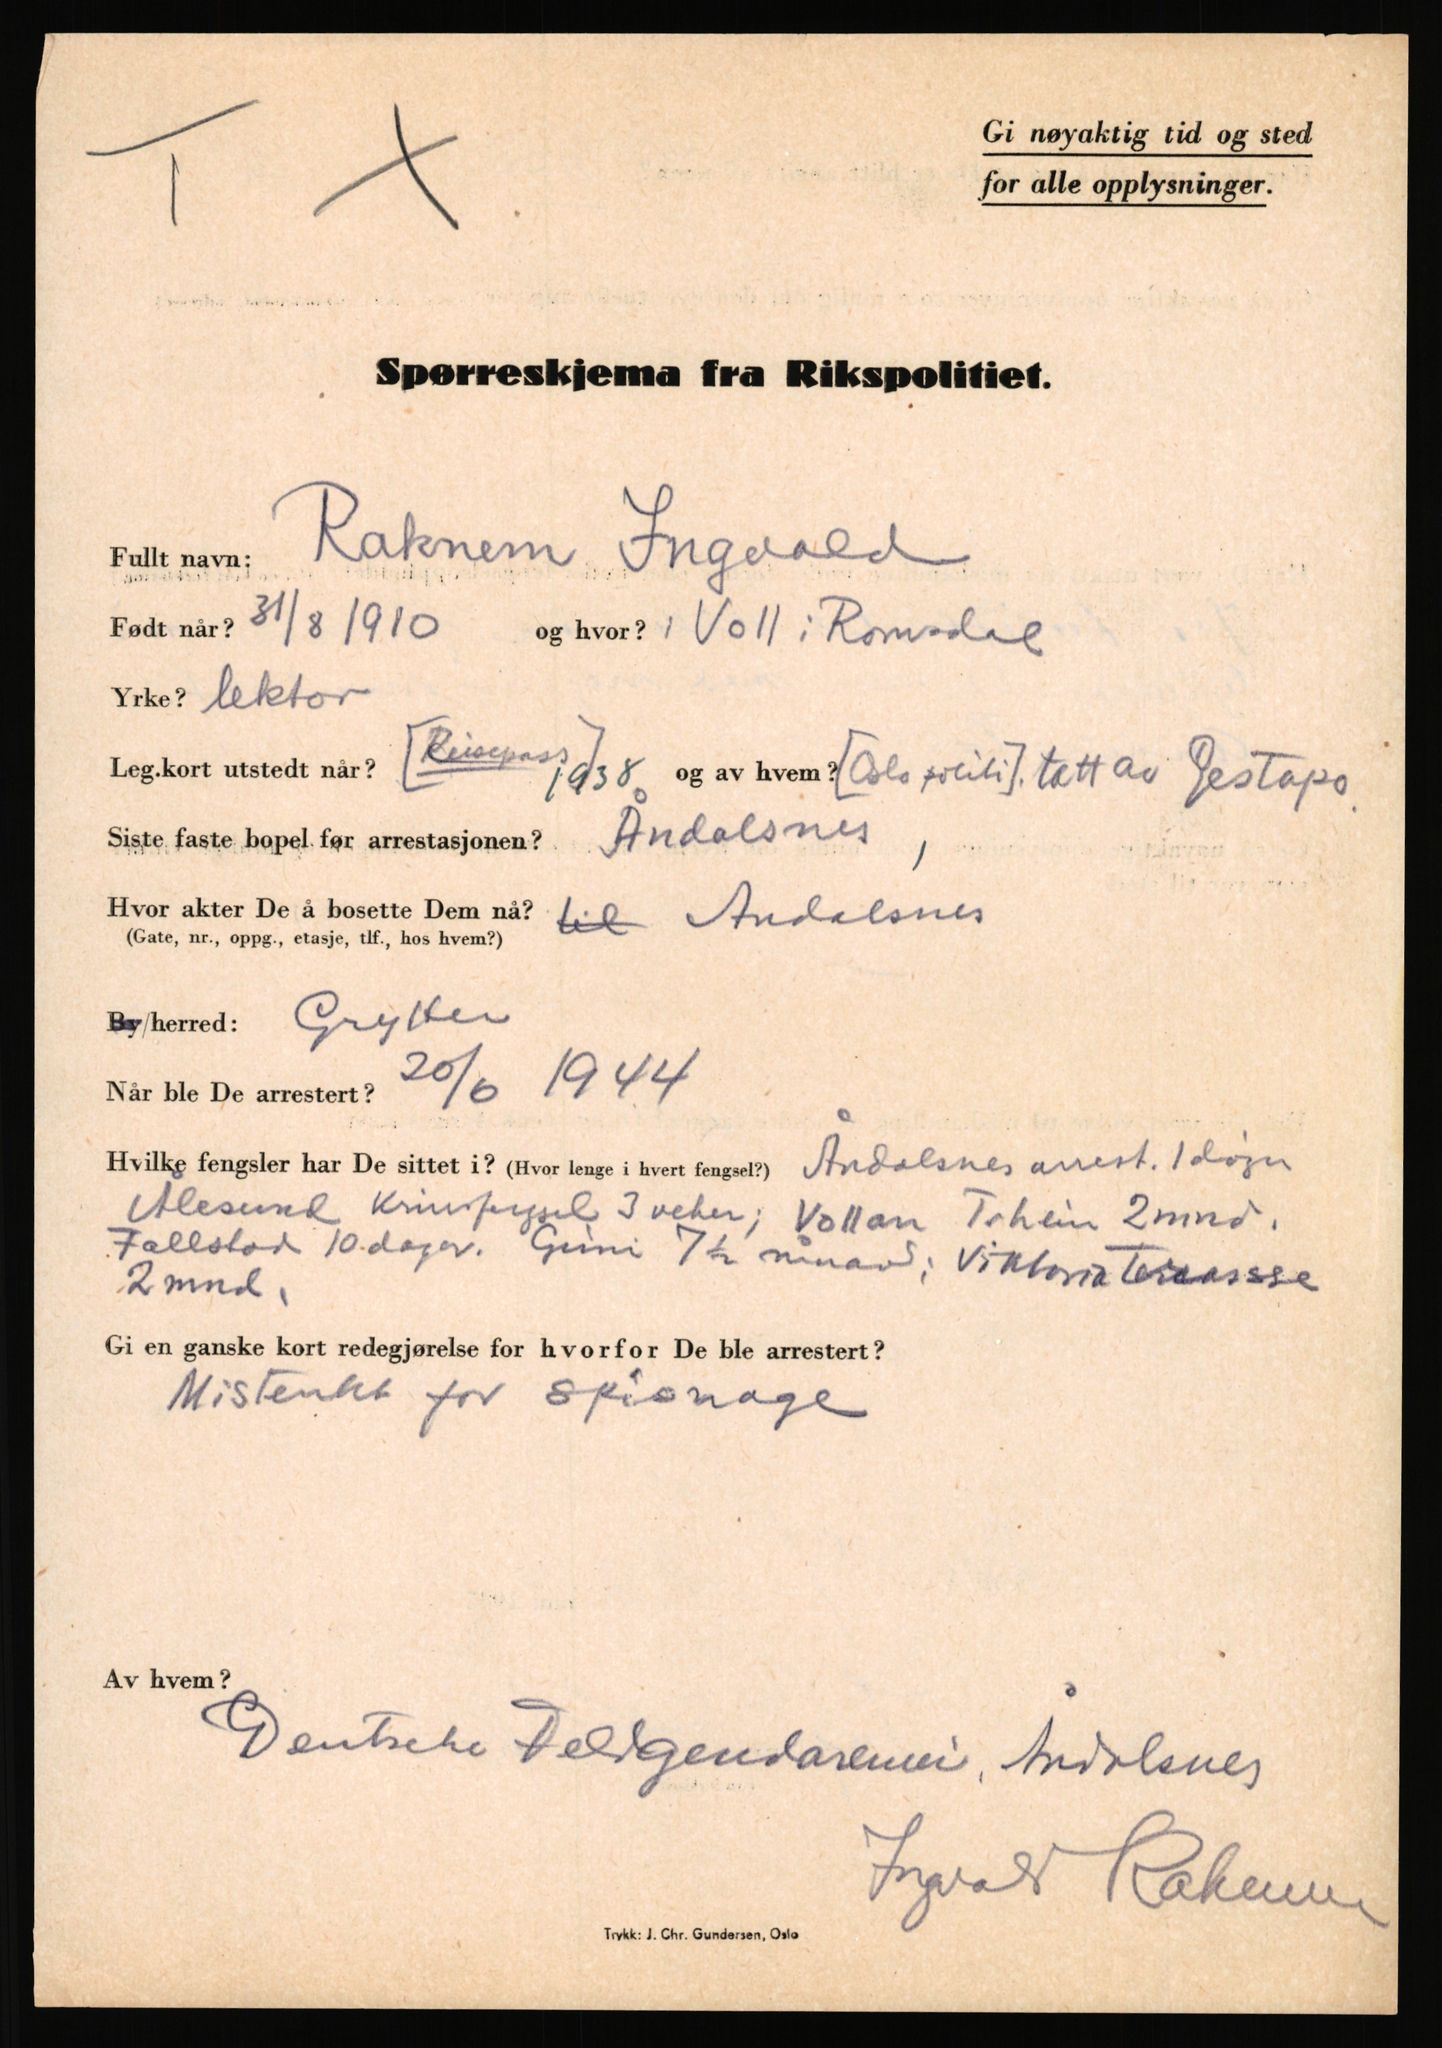 T X
Gi nøyaktig tid og sted
for alle opplysninger.
Spørreskjema fra Rikspolitiet.
Fullt navn: Raknem Ingvald
Født når? 31/8 1910 og hvor? i Voll i Romsdal
Yrke? lektor
Leg.kort utstedt når? [Reisepass] 1938 og av hvem? [Oslo politi]. tatt av Gestapo.
Siste faste bopel før arrestasjonen? Åndalsnes,
Hvor akter De å bosette Dem nå? til Åndalsnes
(Gate, nr., oppg., etasje, tlf., hos hvem?)
By/herred: Grytten
Når ble De arrestert? 20/6 1944
Hvilke fengsler har De sittet i? (Hvor lenge i hvert fengsel?) Åndalsnes arrest. 1 døgn
Ålesund 3 veker; Vollan 2 mnd.
Fallstad 10 dager. Grini 7½ månad; Viktoria Terrassse
2 mnd.
Gi en ganske kort redegjørelse for hvorfor De ble arrestert?
Mistenkt for spionage
Av hvem?
Deutsche Feldgendarmerei, Åndalsnes
Ingvald Raknem
Trykk: J. Chr. Gundersen, Oslo